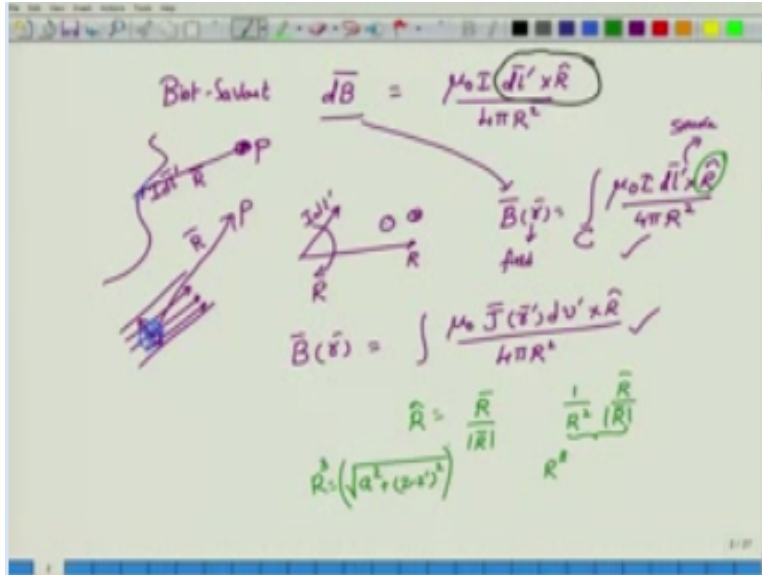 Biot-Savart dB̄ = μ₀I dl̄' × R̂ / 4πR²
Idl̄' R̄ P
source
B̄(r̄) = ∫_C μ₀I dl̄' × R̂ / 4πR²
field
R̄ P
Idl' R R̂
B̄(r̄) = ∫ μ₀ J̄(r̄')dv' × R̂ / 4πR²
R̂ = R̄ / |R̄|
1/R² R̄/|R̄|
R³ = (√(a²+(z-z')²))³
R³